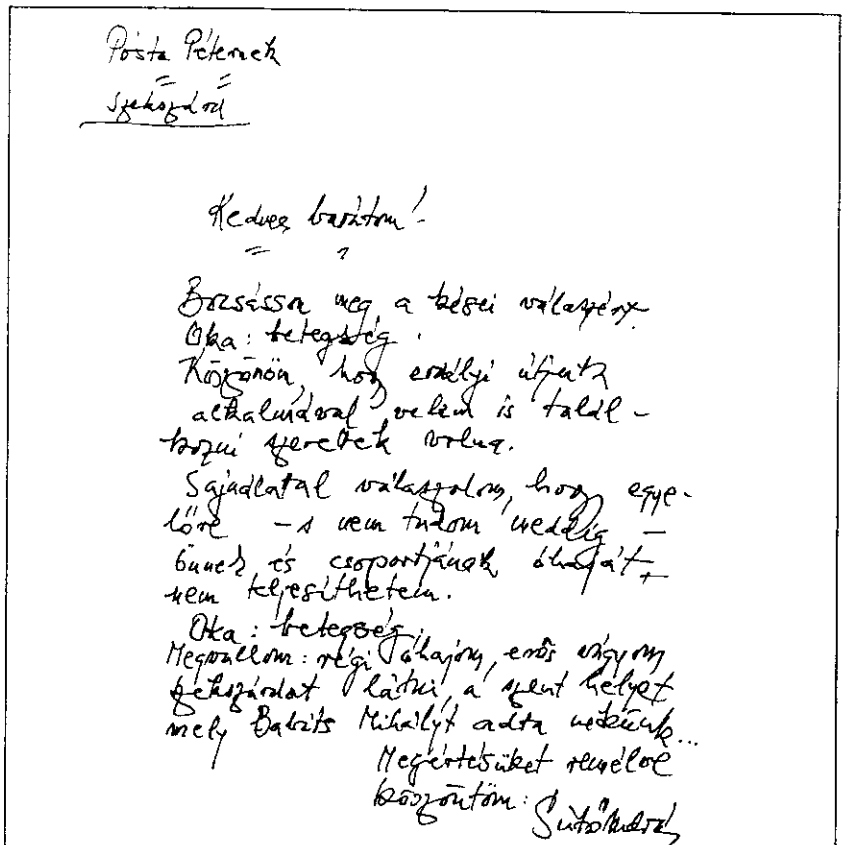 Pósta Péternek
Szekszárd
Kedves barátom!
Bocsásson meg a kései válaszért.
Oka: betegség.
Köszönöm, hogy erdélyi útjuk
alkalmával velem is talál-
kozni szerettek volna.
Sajnálattal válaszolom, hogy egye-
lőre – s nem tudom meddig –
önnek és csoportjának óhaját
nem teljesíthetem.
Oka: betegség.
Megvallom: régi óhajom, erős vágyom
Szekszárdat látni, a szent helyet
mely Babits Mihályt adta nekünk...
Megértésüket remélve
köszöntöm: Sütő András